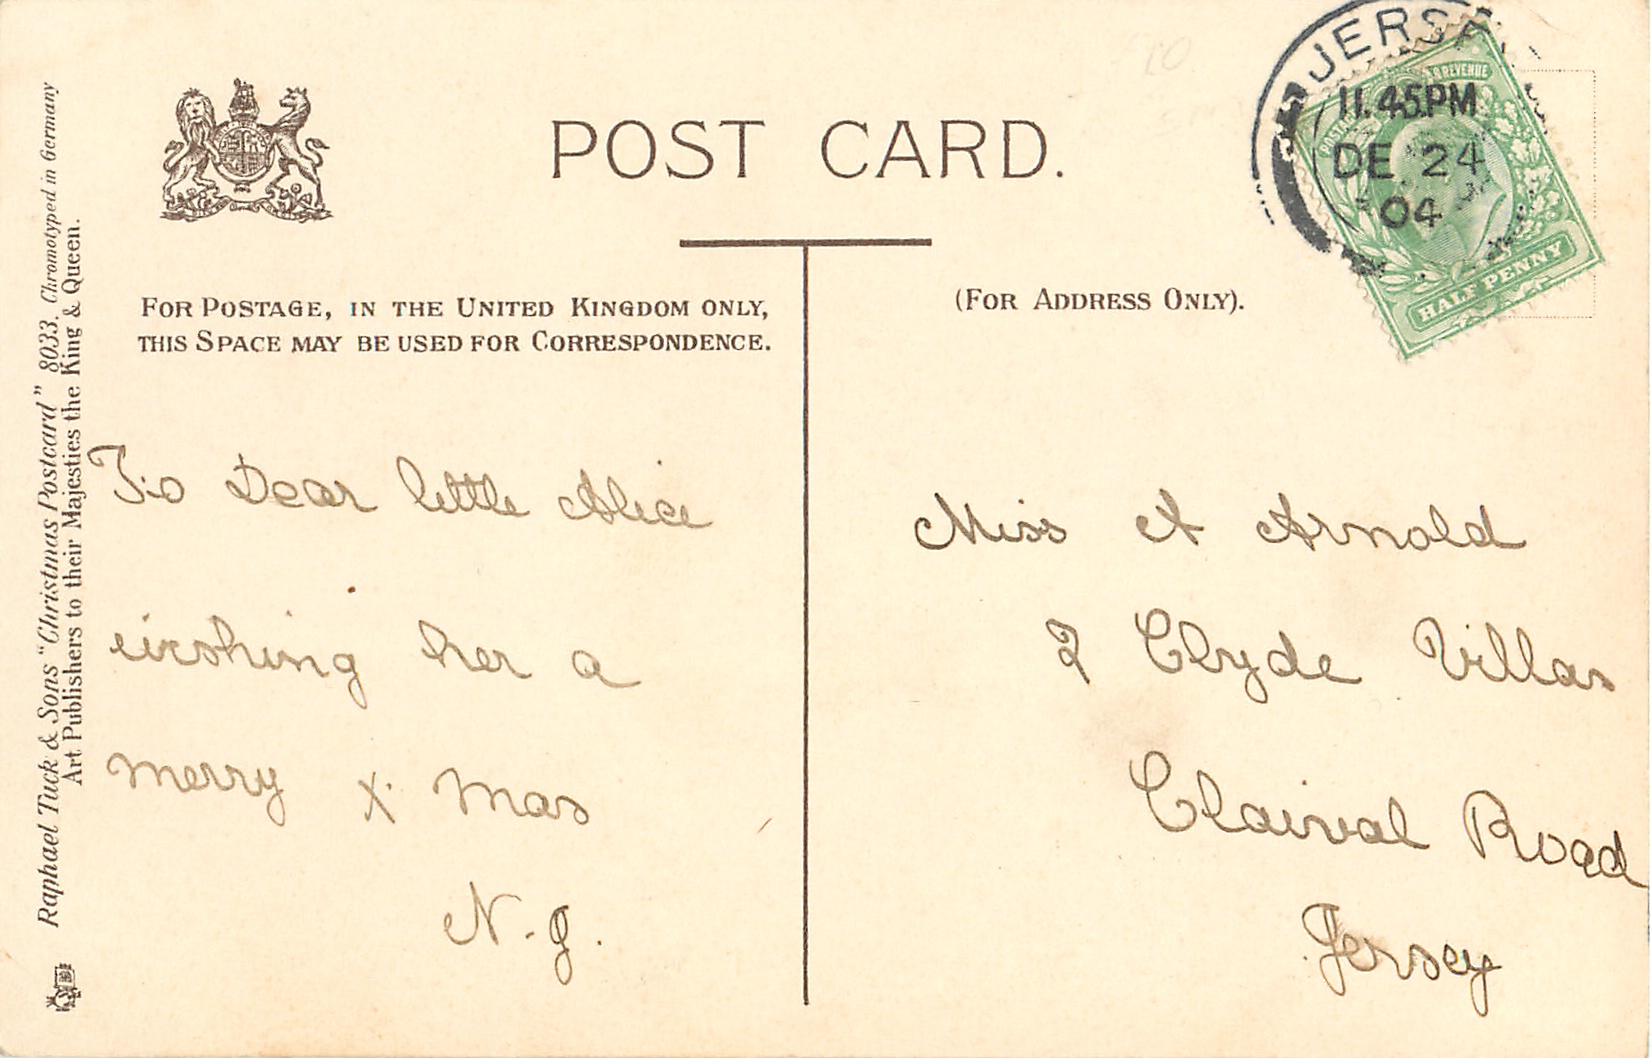 POST CARD.
FOR POSTAGE, IN THE UNITED KINGDOM ONLY,
THIS SPACE MAY BE USED FOR CORRESPONDENCE.
(FOR ADDRESS ONLY).
Raphael Tuck & Sons "Christmas Postcard" 8033. Chromotyped in Germany
Art Publishers to their Majesties the King & Queen.
JERSEY
11.45PM
DE 24
04
& REVENUE
HALF PENNY
To Dear little Alice
wishing her a
merry X mas
N. J.
Miss A Arnold
2 Clyde Villas
Clairval Road
Jersey